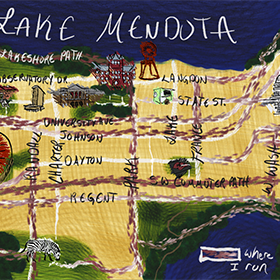 LAKE MENDOTA
LAKESHORE PATH
OBSERVATORY DR.
LANGDON
STATE ST.
UNIVERSITY AVE.
JOHNSON
DAYTON
REGENT
RANDALL
CHARTER
PARK
LAKE
FRANCES
S.W COMMUTER PATH
E. WASH
Where
I run